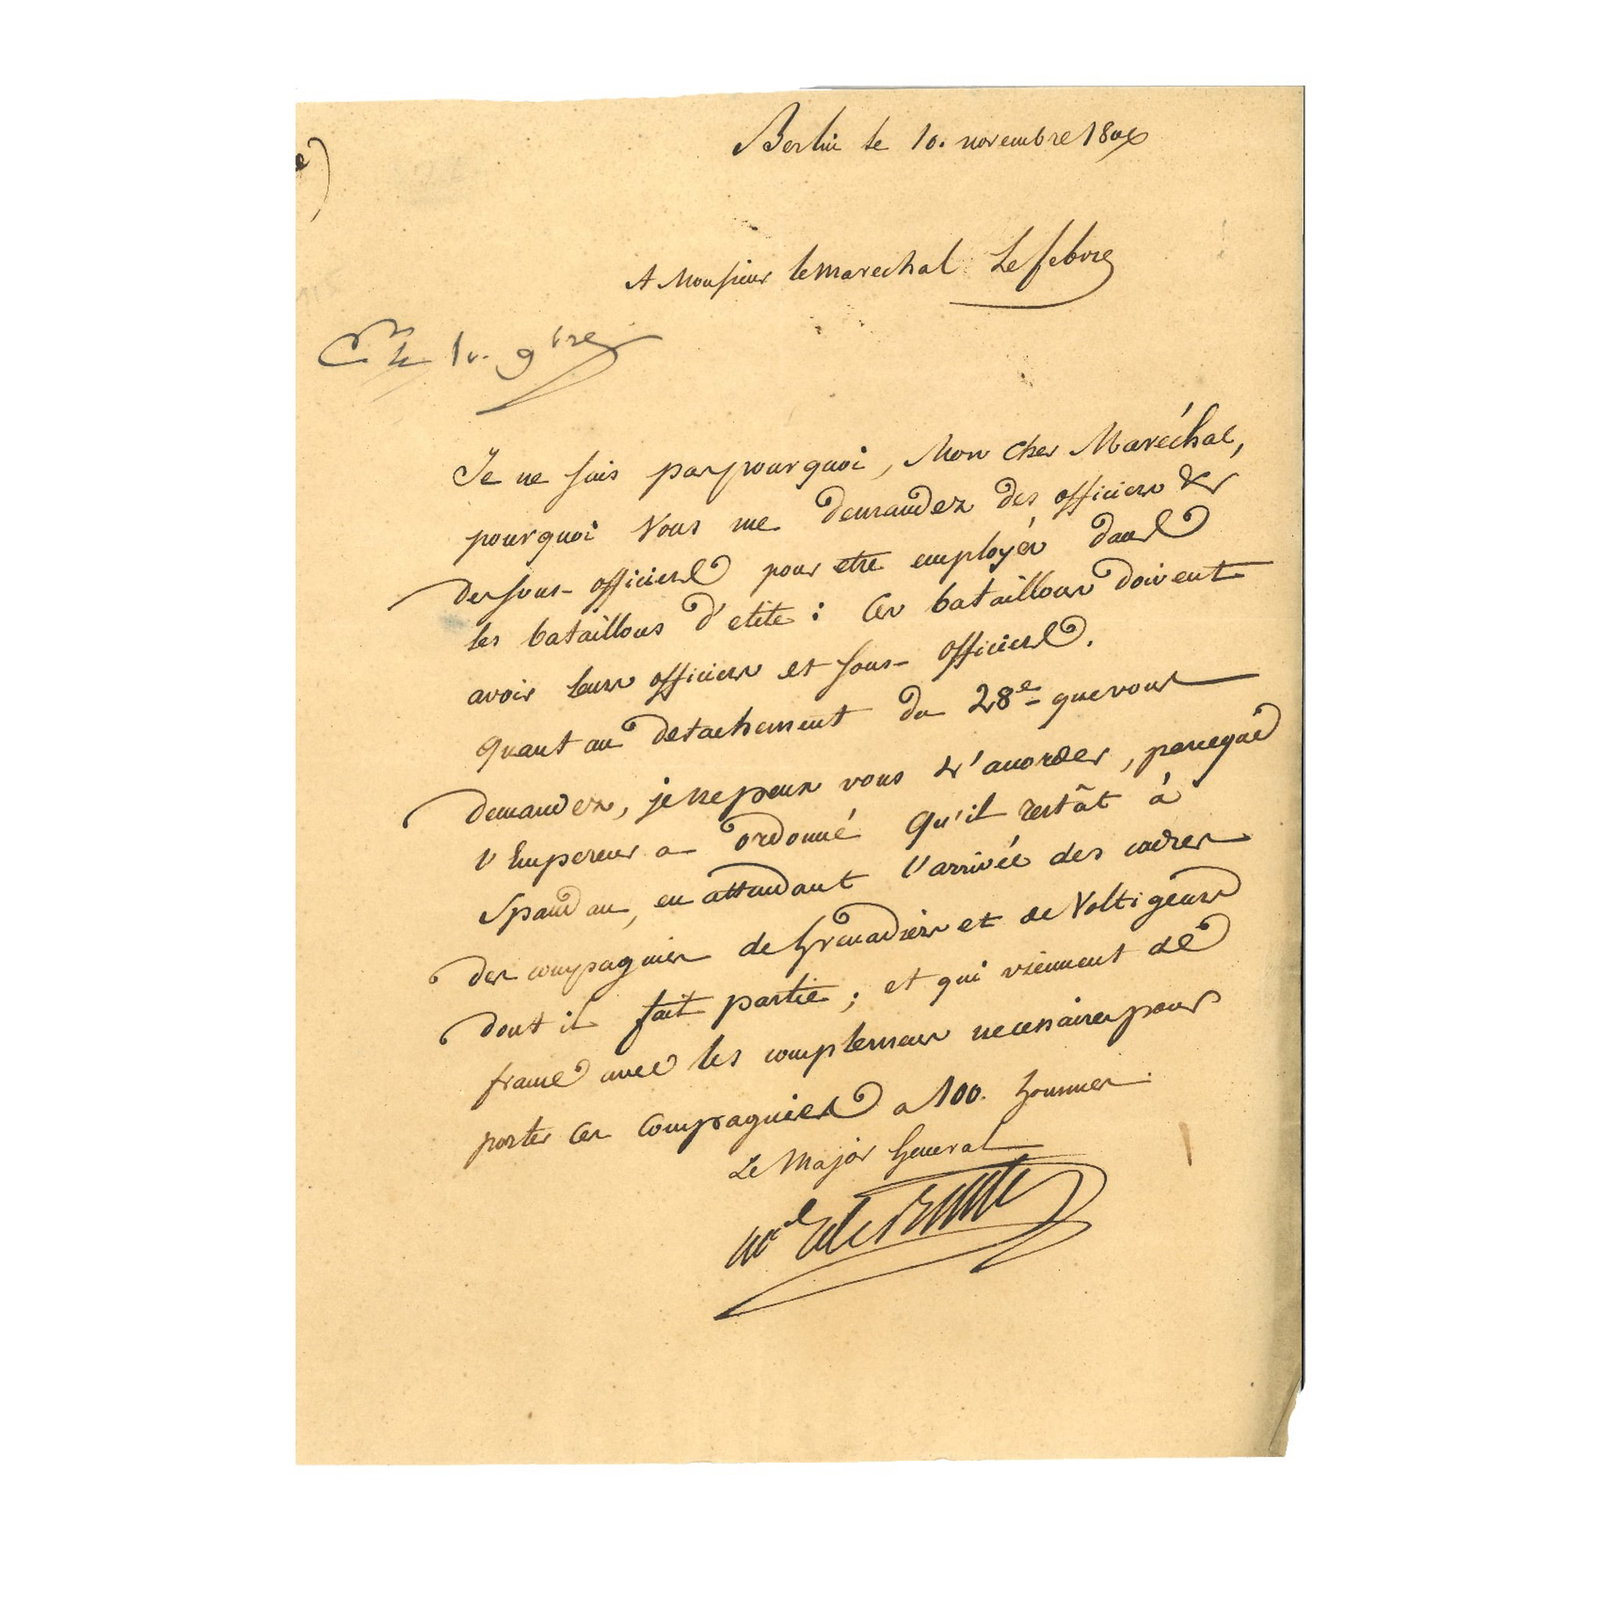 Berlin le 10. novembre 1806
A Monsieur le marechal Lefebvre
le 10. 9bre
Je ne sais pas pourquoi, Mon cher Maréchal,
pourquoi Vous me demandez des officiers &
des sous-officiers pour etre employés dans
les bataillons d'elite : Ces bataillons doivent
avoir leurs officiers et sous-officiers.
Quant au detachement du 28e que vous
demandez, je ne peux vous l'acorder, parceque
l'Empereur a ordonné qu'il restât à
Spandau, en attendant l'arrivée des cadres
des compagnies de Grenadiers et de Voltigeurs
dont il fait partie ; et qui viennent de
france avec les complemens necessaires pour
porter ces Compagnies a 100. hommes.
Le Major General